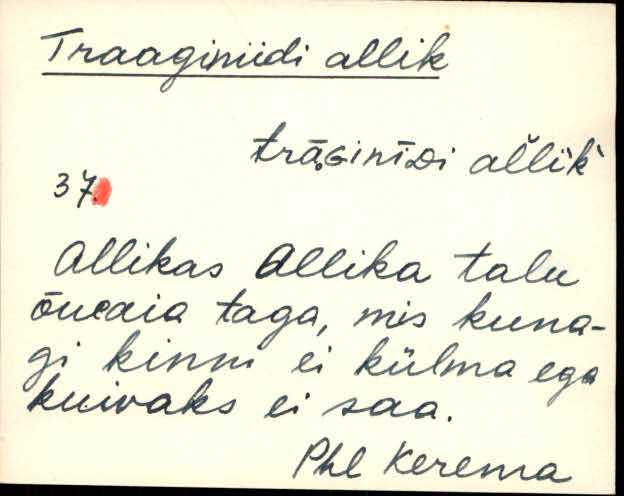 Traaginiidi allik
trāɢinīᴅi all̆ik̀
37.
Allikas Allika talu
õueaia taga, mis kuna-
gi kinni ei külma ega
kuivaks ei saa.
Phl Kerema